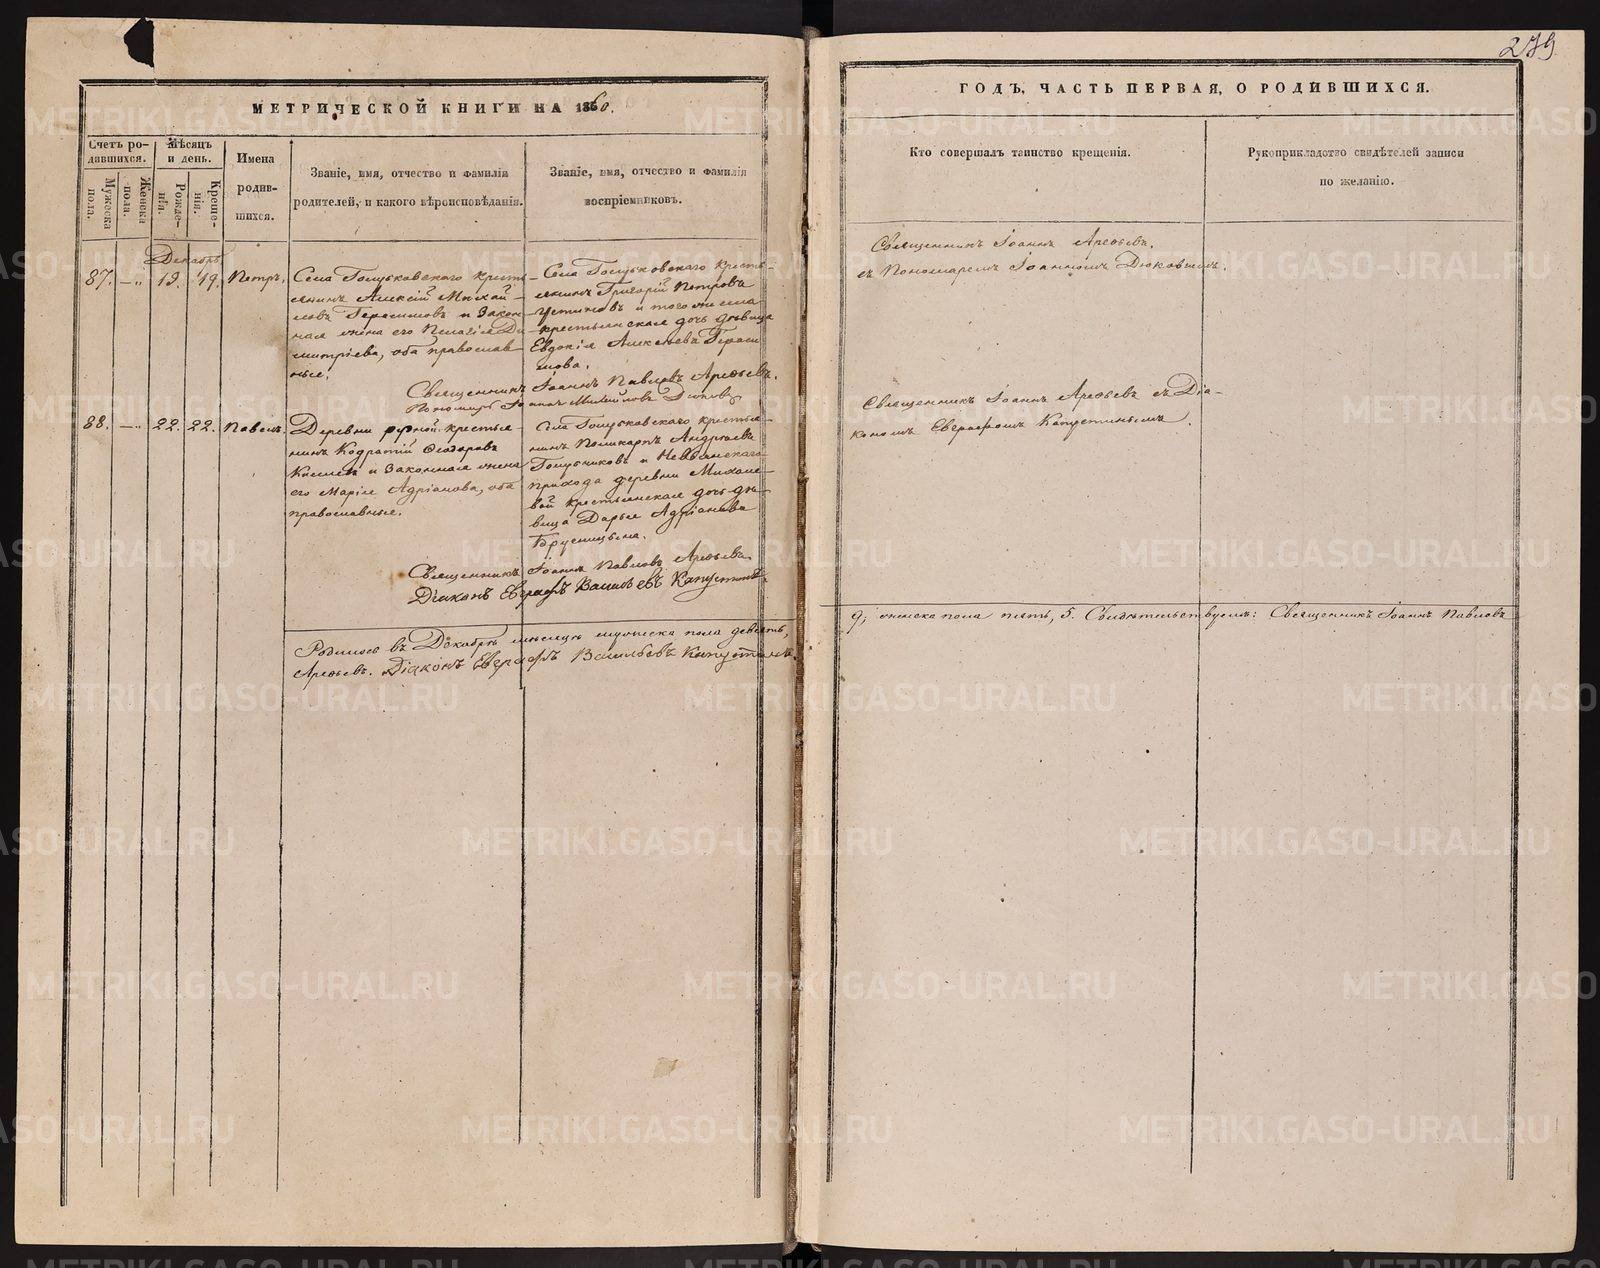 279
МЕТРИЧЕСКОЙ КНИГИ НА 1860.
ГОДЪ, ЧАСТЬ ПЕРВАЯ, О РОДИВШИХСЯ.
Счетъ ро-
давшихся.
Мужеска
пола.
Женска
пола.
Мѣсяцъ
и день.
Рожде-
нія.
Креше-
нія.
Имена
родив-
шихся.
Званіе, имя, отчество и фамилія
родителей, и какого вѣроисповѣданія.
Званіе, имя, отчество и фамилія
воспріемниковъ.
Кто совершалъ таинство крещенія.
Рукоприкладство свидѣтелей записи
по желанію.
Декабрь
87. — „ 19. 19. Петръ.
Села Голубковскаго крестъ-
янинъ Алексій Михай-
ловъ Герасимовъ и Закон-
ная жена его Пелагія Ди-
митріева, оба православ-
ные.
Села Голубковскаго кресть-
янинъ Григорій Петровъ
Устиновъ и того же села
крестьянская дочь дѣвица
Евдокія Алексѣева Гераси
мова.
Священникъ Іоаннъ Павловъ Арефьевъ.
Пономарь Іоаннъ Дюковъ
Священникъ Іоаннъ Арефьевъ.
съ Пономаремъ Іоанномъ Дюковымъ.
88. — „ 22. 22. Павелъ.
Деревни крестья-
нинъ Кодратій Ѳеодоровъ
и Законная жена
его Марія Адріанова, оба
православные.
Села Голубковскаго крестья-
нинъ Поликарпъ Андреевъ
Голубчиковъ и Невьянскаго
прихода деревни Михале-
вой крестьянская дочь дѣ-
вица Дарья Адріанова
Брусницына.
Священникъ Іоаннъ Павловъ Арефьевъ
Діаконъ Евграфъ Васильевъ Капустинъ
Священникъ Іоаннъ Арефьевъ съ Діа-
кономъ Евграфомъ Капустинымъ.
Родилось въ Декабрѣ мѣсяцѣ мужеска пола девять,
9; женска пола пять, 5. Свидѣтельствуемъ: Священникъ Іоаннъ Павловъ
Арефьевъ. Діаконъ Евграфъ Васильевъ Капустинъ.
METRIKI.GASO-URAL.RU